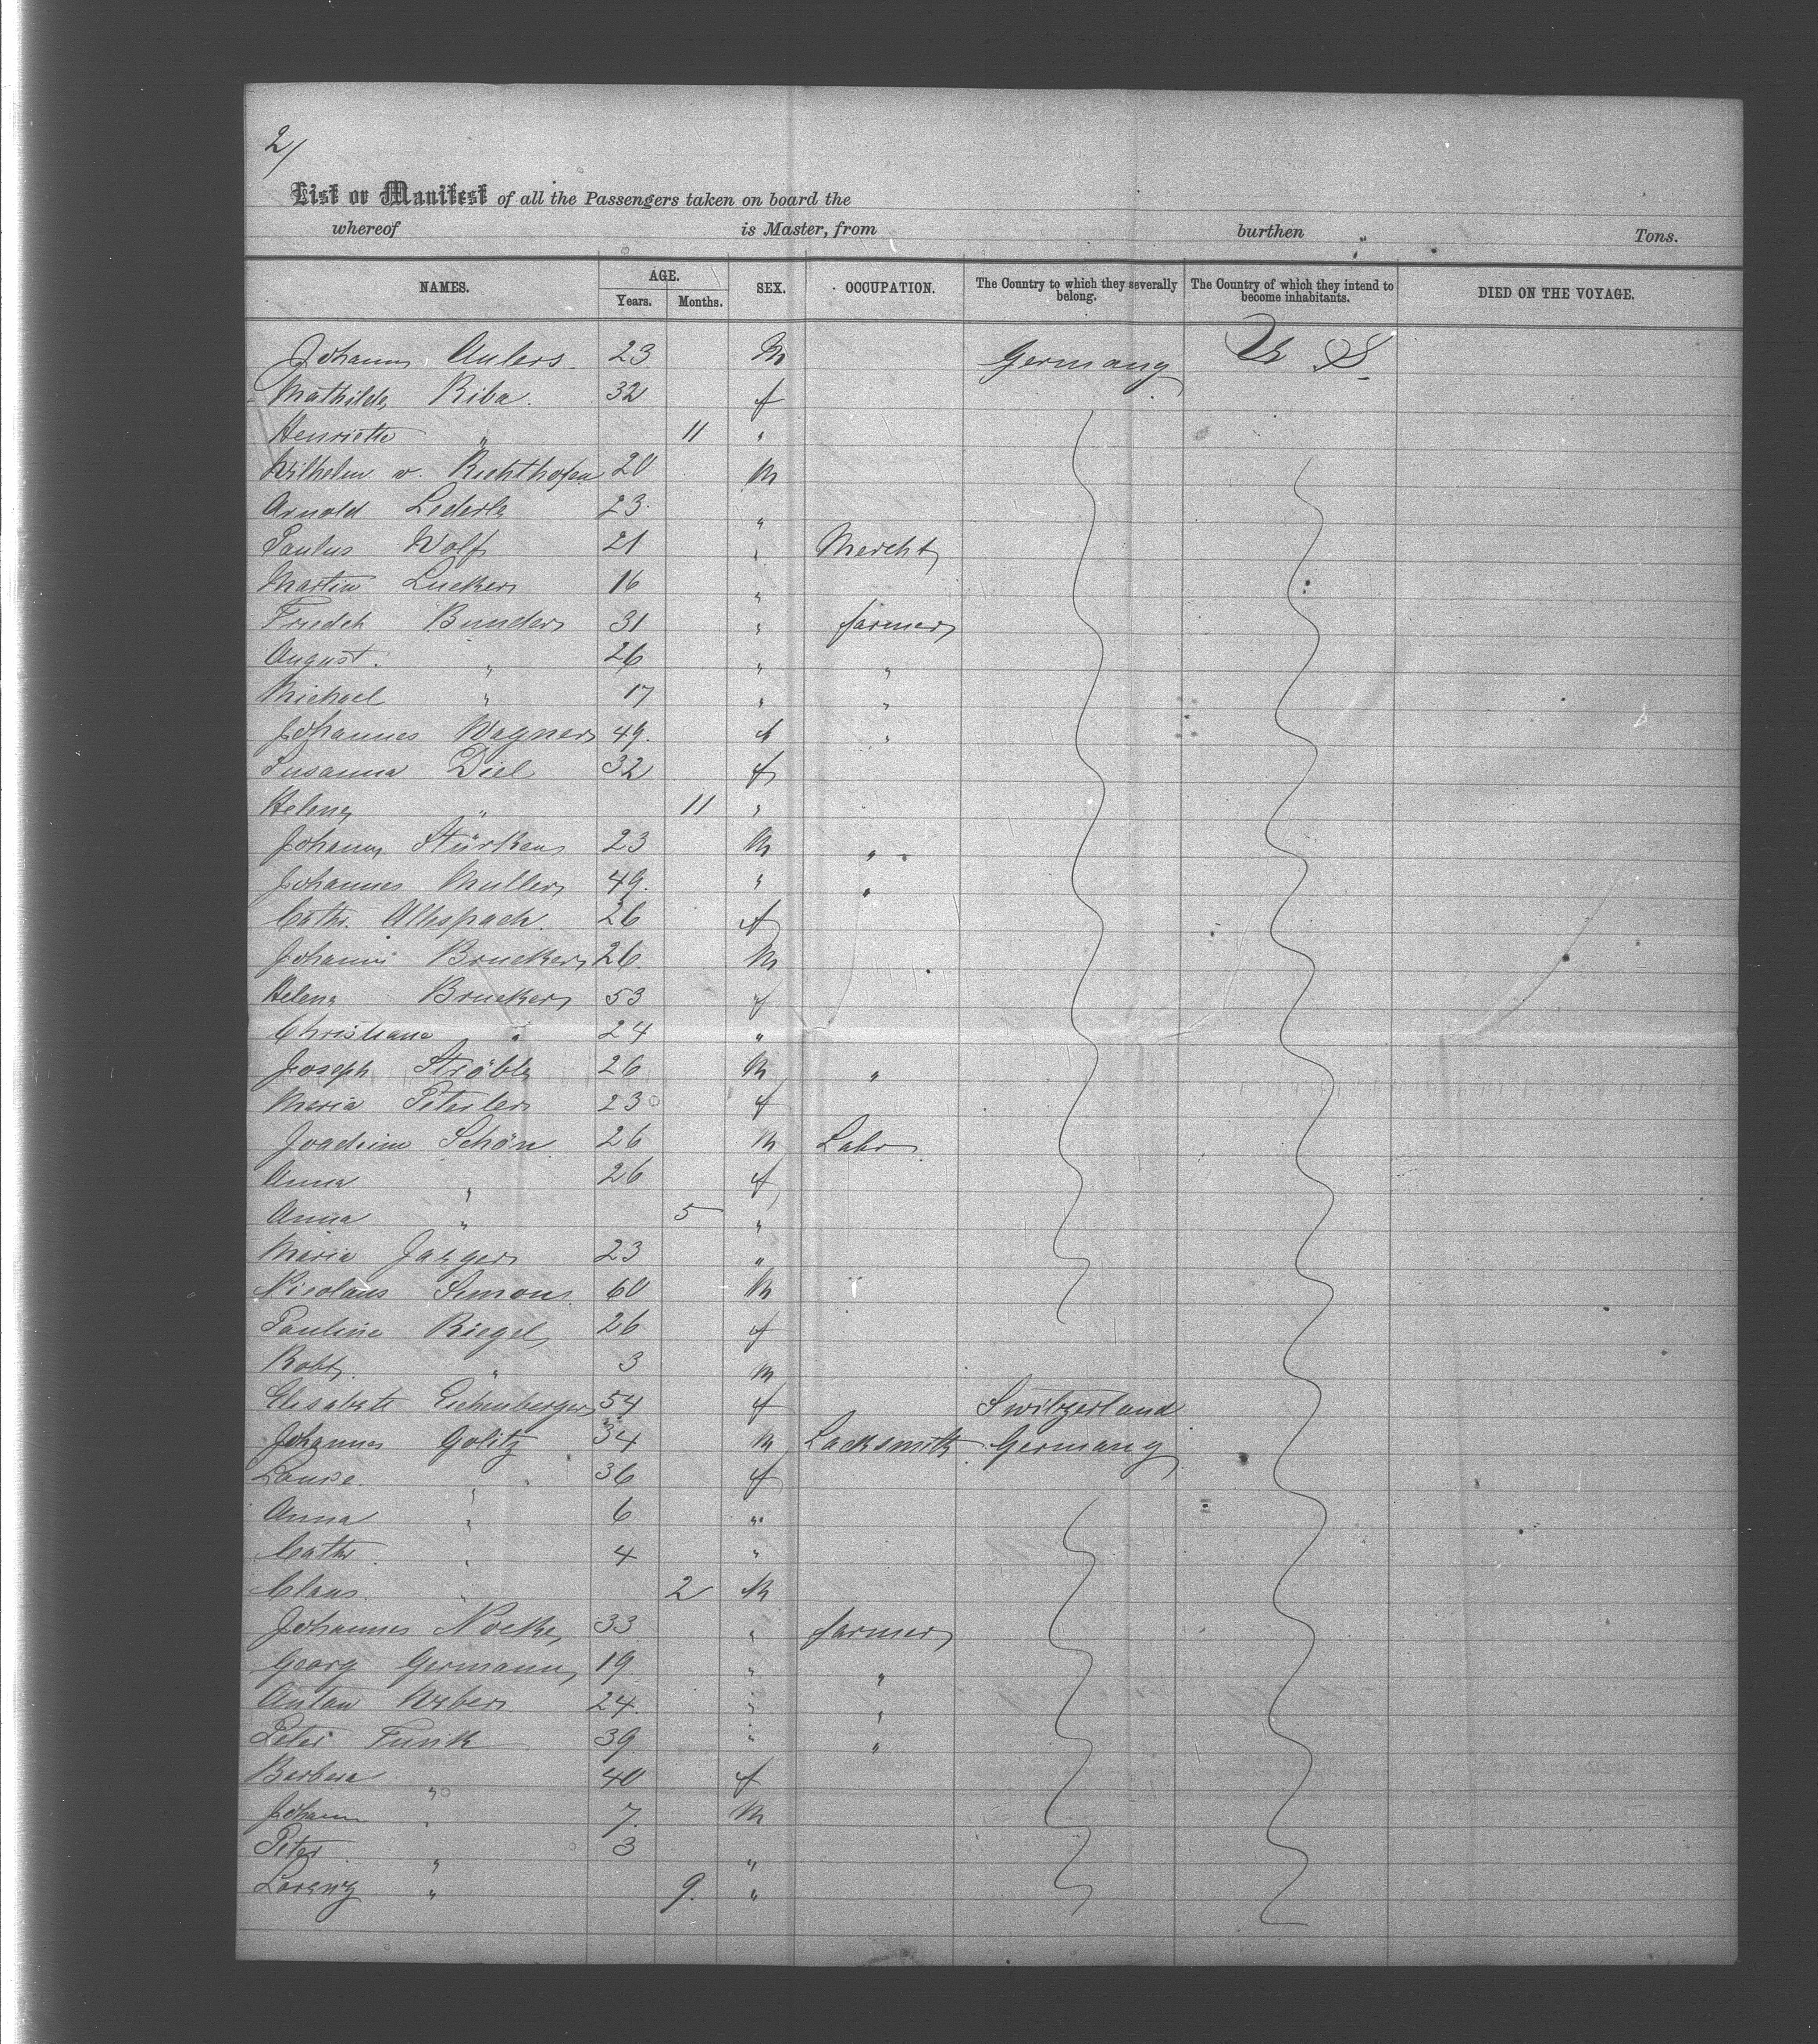 2/
List or Manifest of all the Passengers taken on board the
whereof is Master, from burthen Tons.
NAMES. AGE. Years. Months. SEX. OCCUPATION. The Country to which they severally belong. The Country of which they intend to become inhabitants. DIED ON THE VOYAGE.
Johann 23 M Germany U S
Mathilde Riba 32 f
Henriette " 11 "
Wilhelm v. Richthofen 20 M
Arnold Lederle 23 "
Paulus Wolf 21 " Mercht
Martin Lucker 16 "
Friedch Bunder 31 " farmer
August " 26 " "
Michael " 17 " "
Johannes Wagner 49 " "
Susanna Diel 32 f
Helene " 11 "
Johann Stürken 23 M "
Johannes Muller 49 " "
Cath. Allespach 26 f
Johann Brucker 26 M
Helene Brucker 53 f
Christiana " 24 "
Joseph Ströble 26 M "
Maria 23 f
Joachim Schön 26 M Labr
Anna " 26 f
Anna " 5 "
Maria Jaeger 23 "
Nicolaus Simons 60 M
Pauline Riegel 26 f
Robt. " 3 M
Elisabeth Eichenberger 54 f Switzerland
Johannes Golitz 34 M Locksmith Germany
Louise " 36 f
Anna " 6 "
Cath " 4 "
Claus " 2 M
Johannes Nocke 33 " farmer
Georg Germann 19 " "
Anton Weber 24 " "
Peter Funk 39 " "
Barbera " 40 f
Johann " 7 M
Peter " 3 "
Lorenz " 9 "